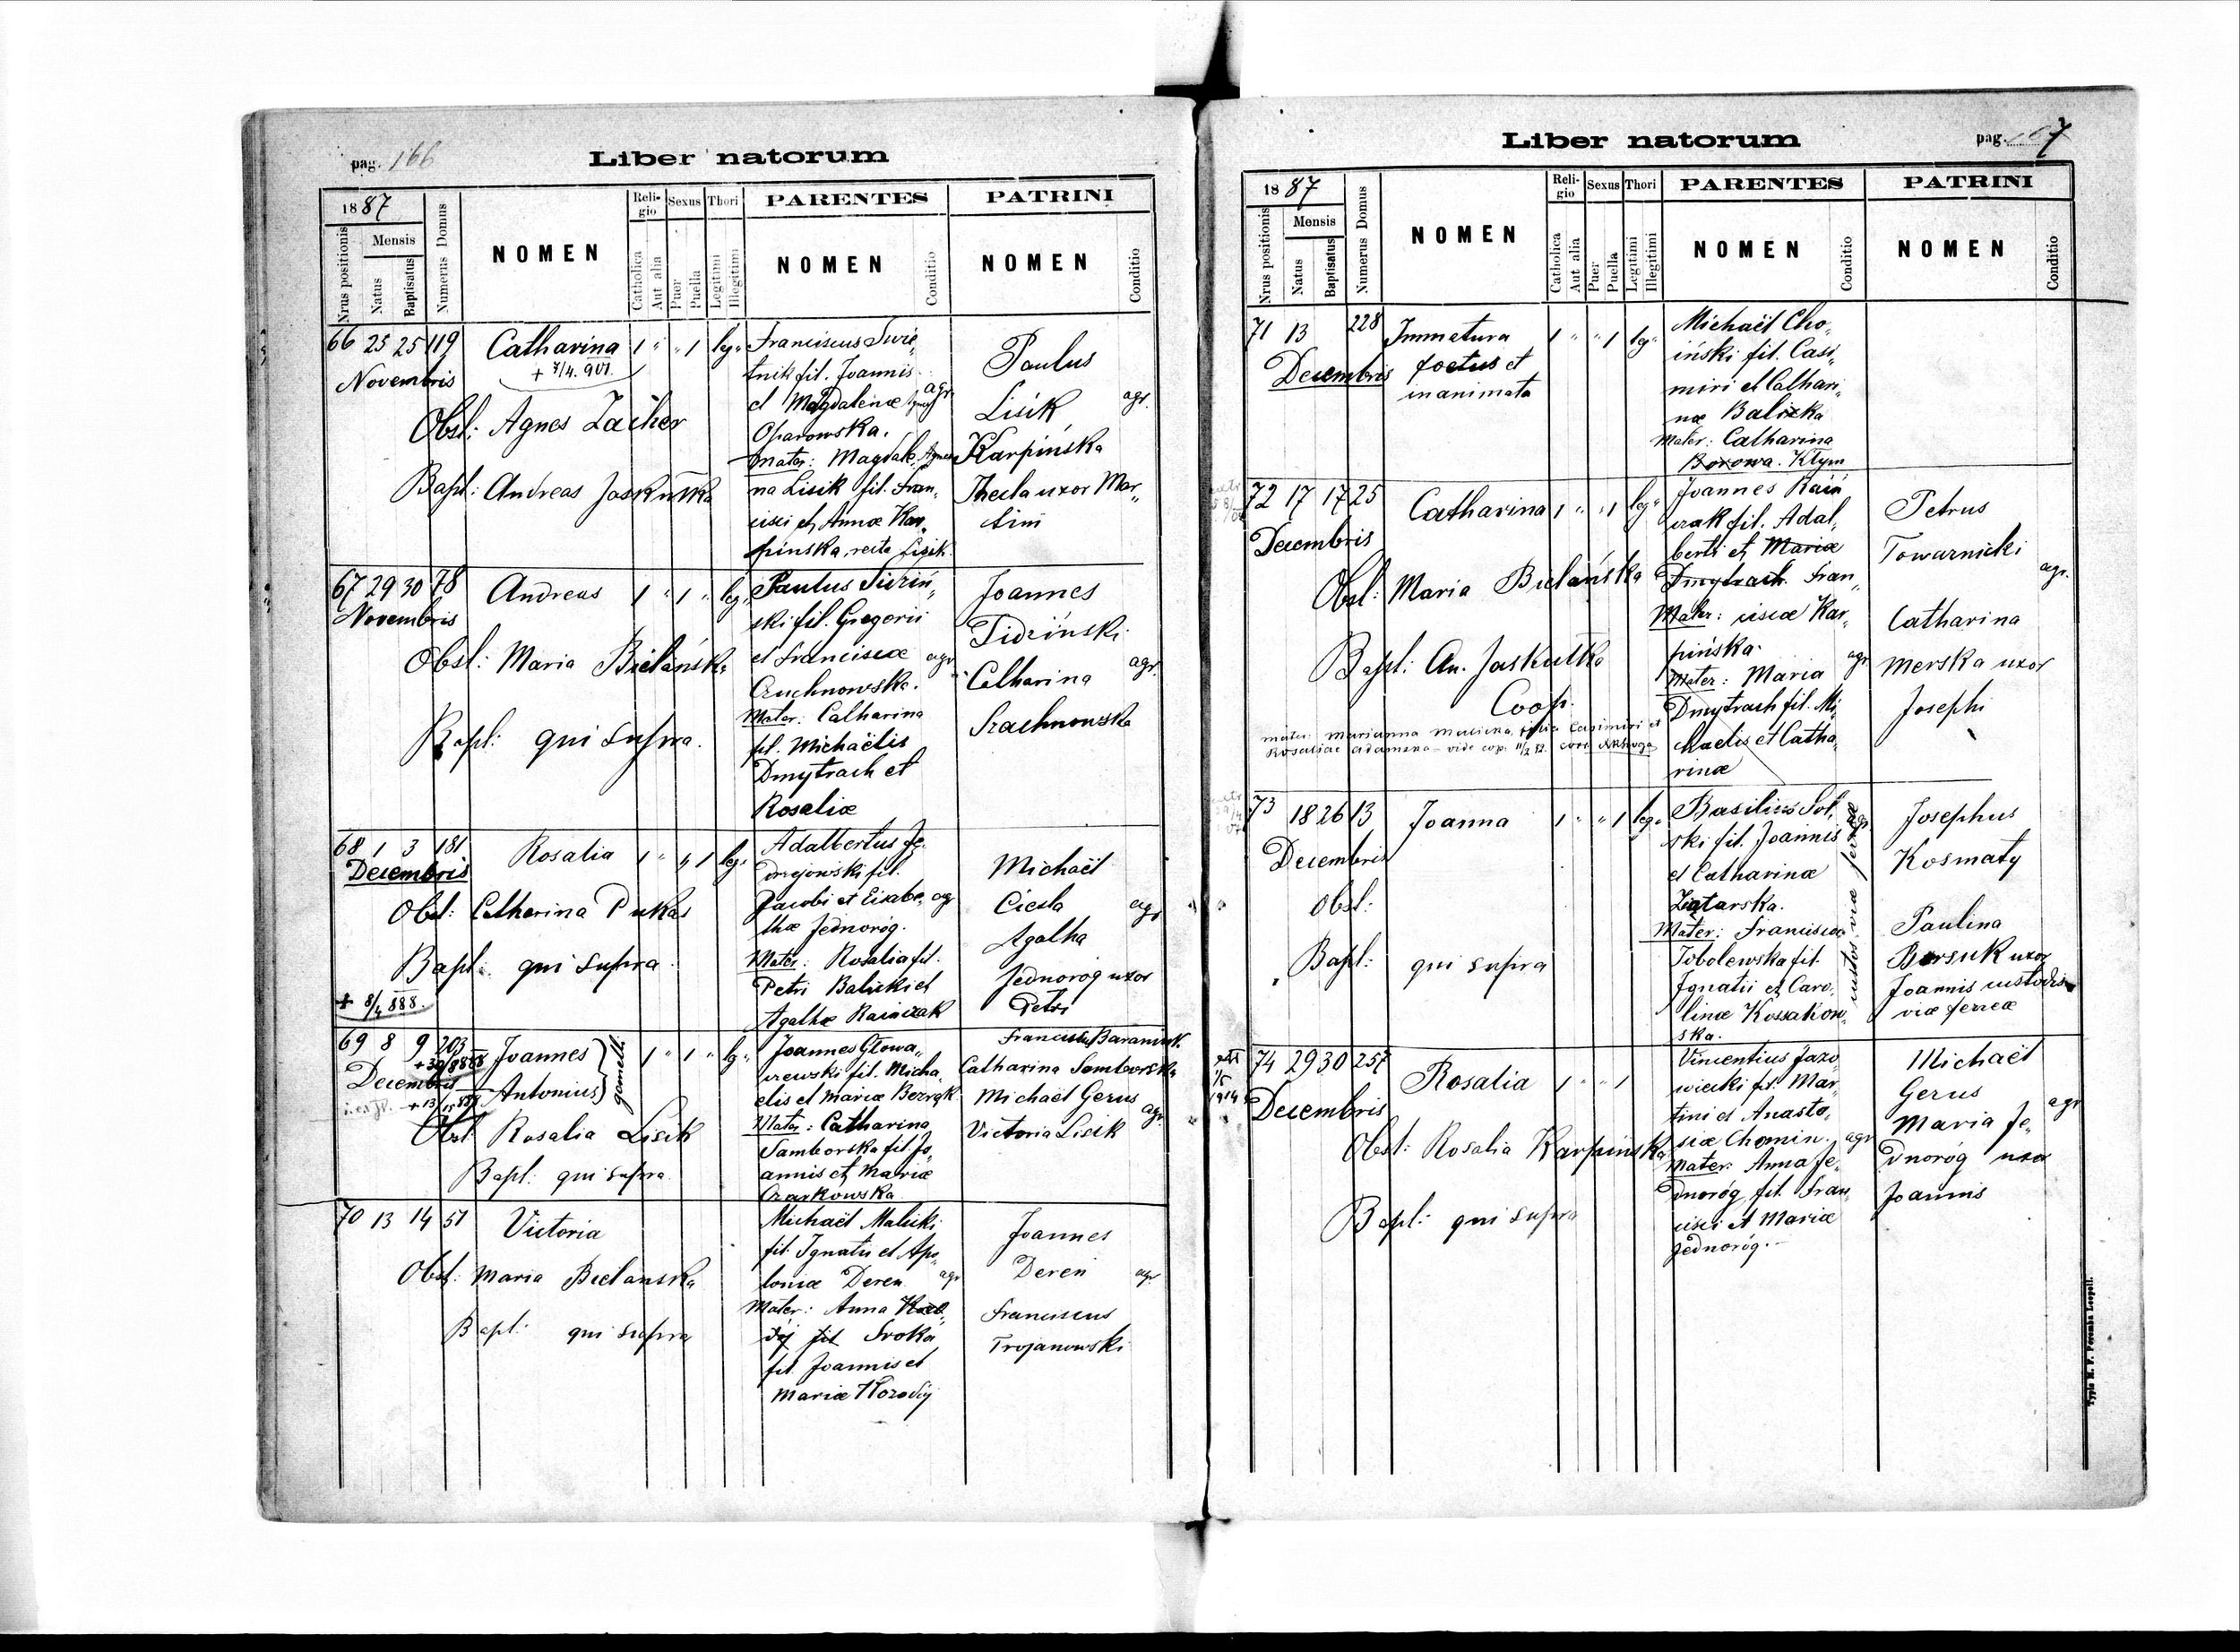 pag. 166
Liber natorum
1887
Nrus positionis
Mensis
Natus
Baptisatus
Numerus Domus
NOMEN
Religio
Catholica
Aut alia
Sexus
Puer
Puella
Thori
Legitimi
Illegitimi
PARENTES
NOMEN
Conditio
PATRINI
NOMEN
Conditio
66 25 25 119 Catharina 1 " " 1 leg.
+ 7/4. 901.
Novembris
Obst: Agnes Zacher
Bapt: Andreas Jaskulka
Franciscus Swie„
tnik fil. Joannis
et Magdalenæ agr.
Oparowska.
Mater: Magdale
na Lisik fil. Fran„
cisci et Annæ Kar„
pinska, recte Lisik
Paulus
Lisik agr.
Karpińska
Thecla uxor Mar„
tini
67 29 30 78 Andreas 1 " 1 " leg.
Novembris
Obst: Maria Bielańska
Bapt: qui supra.
Paulus Sidziń„
ski fil. Gregorii
et Franciscæ agr.
Czuchnowska.
Mater: Catharina
fil. Michaëlis
Dmytrach et
Rosaliæ
Joannes
Sidziński
Catharina agr.
68 1 3 181 Rosalia 1 " " 1 leg.
Decembris
Obst: Catharina Pukas
Bapt: qui supra
+ 8/4 888.
Adalbertus Ję„
drzejowski fil.
Jacobi et Elisabe„ agr
thæ Jednoróg.
Mater: Rosalia fil.
Petri Balicki et
Agathæ Rainczak
Michaël
Ciesla agr
Agatha
Jednoróg uxor
Petri
69 8 9 203 Joannes 1 " 1 " lg.
Decembris Antonius gemelli
Obst: Rosalia Lisik
Bapt: qui supra
Joannes Głowa„
czewski fil. Micha„
elis et Mariæ Bezrąk
Mater: Catharina
Samborska fil. Jo„
annis et Mariæ
Czarkowska
Catharina Samborska
Michaël Gerus
Victoria Lisik agr.
70 13 14 51 Victoria
Obst: Maria Bielanska
Bapt: qui supra
Michaël Malicki
fil. Ignatii et Apo„
loniæ Deren agr
Mater: Anna
Sroka
fil. Joannis et
Mariæ Korodij
Joannes
Deren agr.
Franciscus
Trojanowski
Liber natorum
pag. 167
1887
Nrus positionis
Mensis
Natus
Baptisatus
Numerus Domus
NOMEN
Religio
Catholica
Aut alia
Sexus
Puer
Puella
Thori
Legitimi
Illegitimi
PARENTES
NOMEN
Conditio
PATRINI
NOMEN
Conditio
71 13 228 Immatura 1 " " 1 leg.
Decembris foetus et
inanimata
Michaël Cho„
iński fil. Casi„
miri et Cathari„
næ Balicka
Mater: Catharina
Borowa. Kłym
72 17 17 25 Catharina 1 " " 1 leg.
Decembris
Obst: Maria Bielańska
Bapt: An. Jaskulka
Coop.
mater: Marianna Malicka, filia Casimiri et
Rosaliae Adamska - vide cop.
Joannes Rain„
czak fil. Adal„
berti et Mariæ
Dmytrach. Fran„
Mater: ciscæ Kar„
pińska.
Mater: Maria agr
Dmytrach fil. Mi„
chaelis et Catha„
rinæ
Petrus
Towarnicki agr.
Catharina
Merska uxor
Josephi
73 18 26 13 Joanna 1 " " 1 leg.
Decembris
Obst:
Bapt: qui supra
Basilius Sol„
ski fil. Joannis
et Catharinæ
Złatarska.
Mater: Francisca
Sobolewska fil.
Ignatii et Caro„
linæ Kossakow„
ska.
custos viæ ferreæ
Josephus
Kosmaty
Paulina
Borsuk uxor
Joannis custodis
viæ ferreæ
74 29 30 257 Rosalia 1 " " 1
Decembris
Obst: Rosalia Karpinska
Bapt: qui supra
Vincentius Jazo„
wiecki fil. Mar„
tini et Anasta„
siæ Chomin. agr
Mater: Anna Je„
dnoróg fil. Fran„
cisci et Mariæ
Jednoróg.
Michaël
Gerus
Maria Je„ agr
dnoróg uxor
Joannis
Typis H. F. Poremba Leopoli.